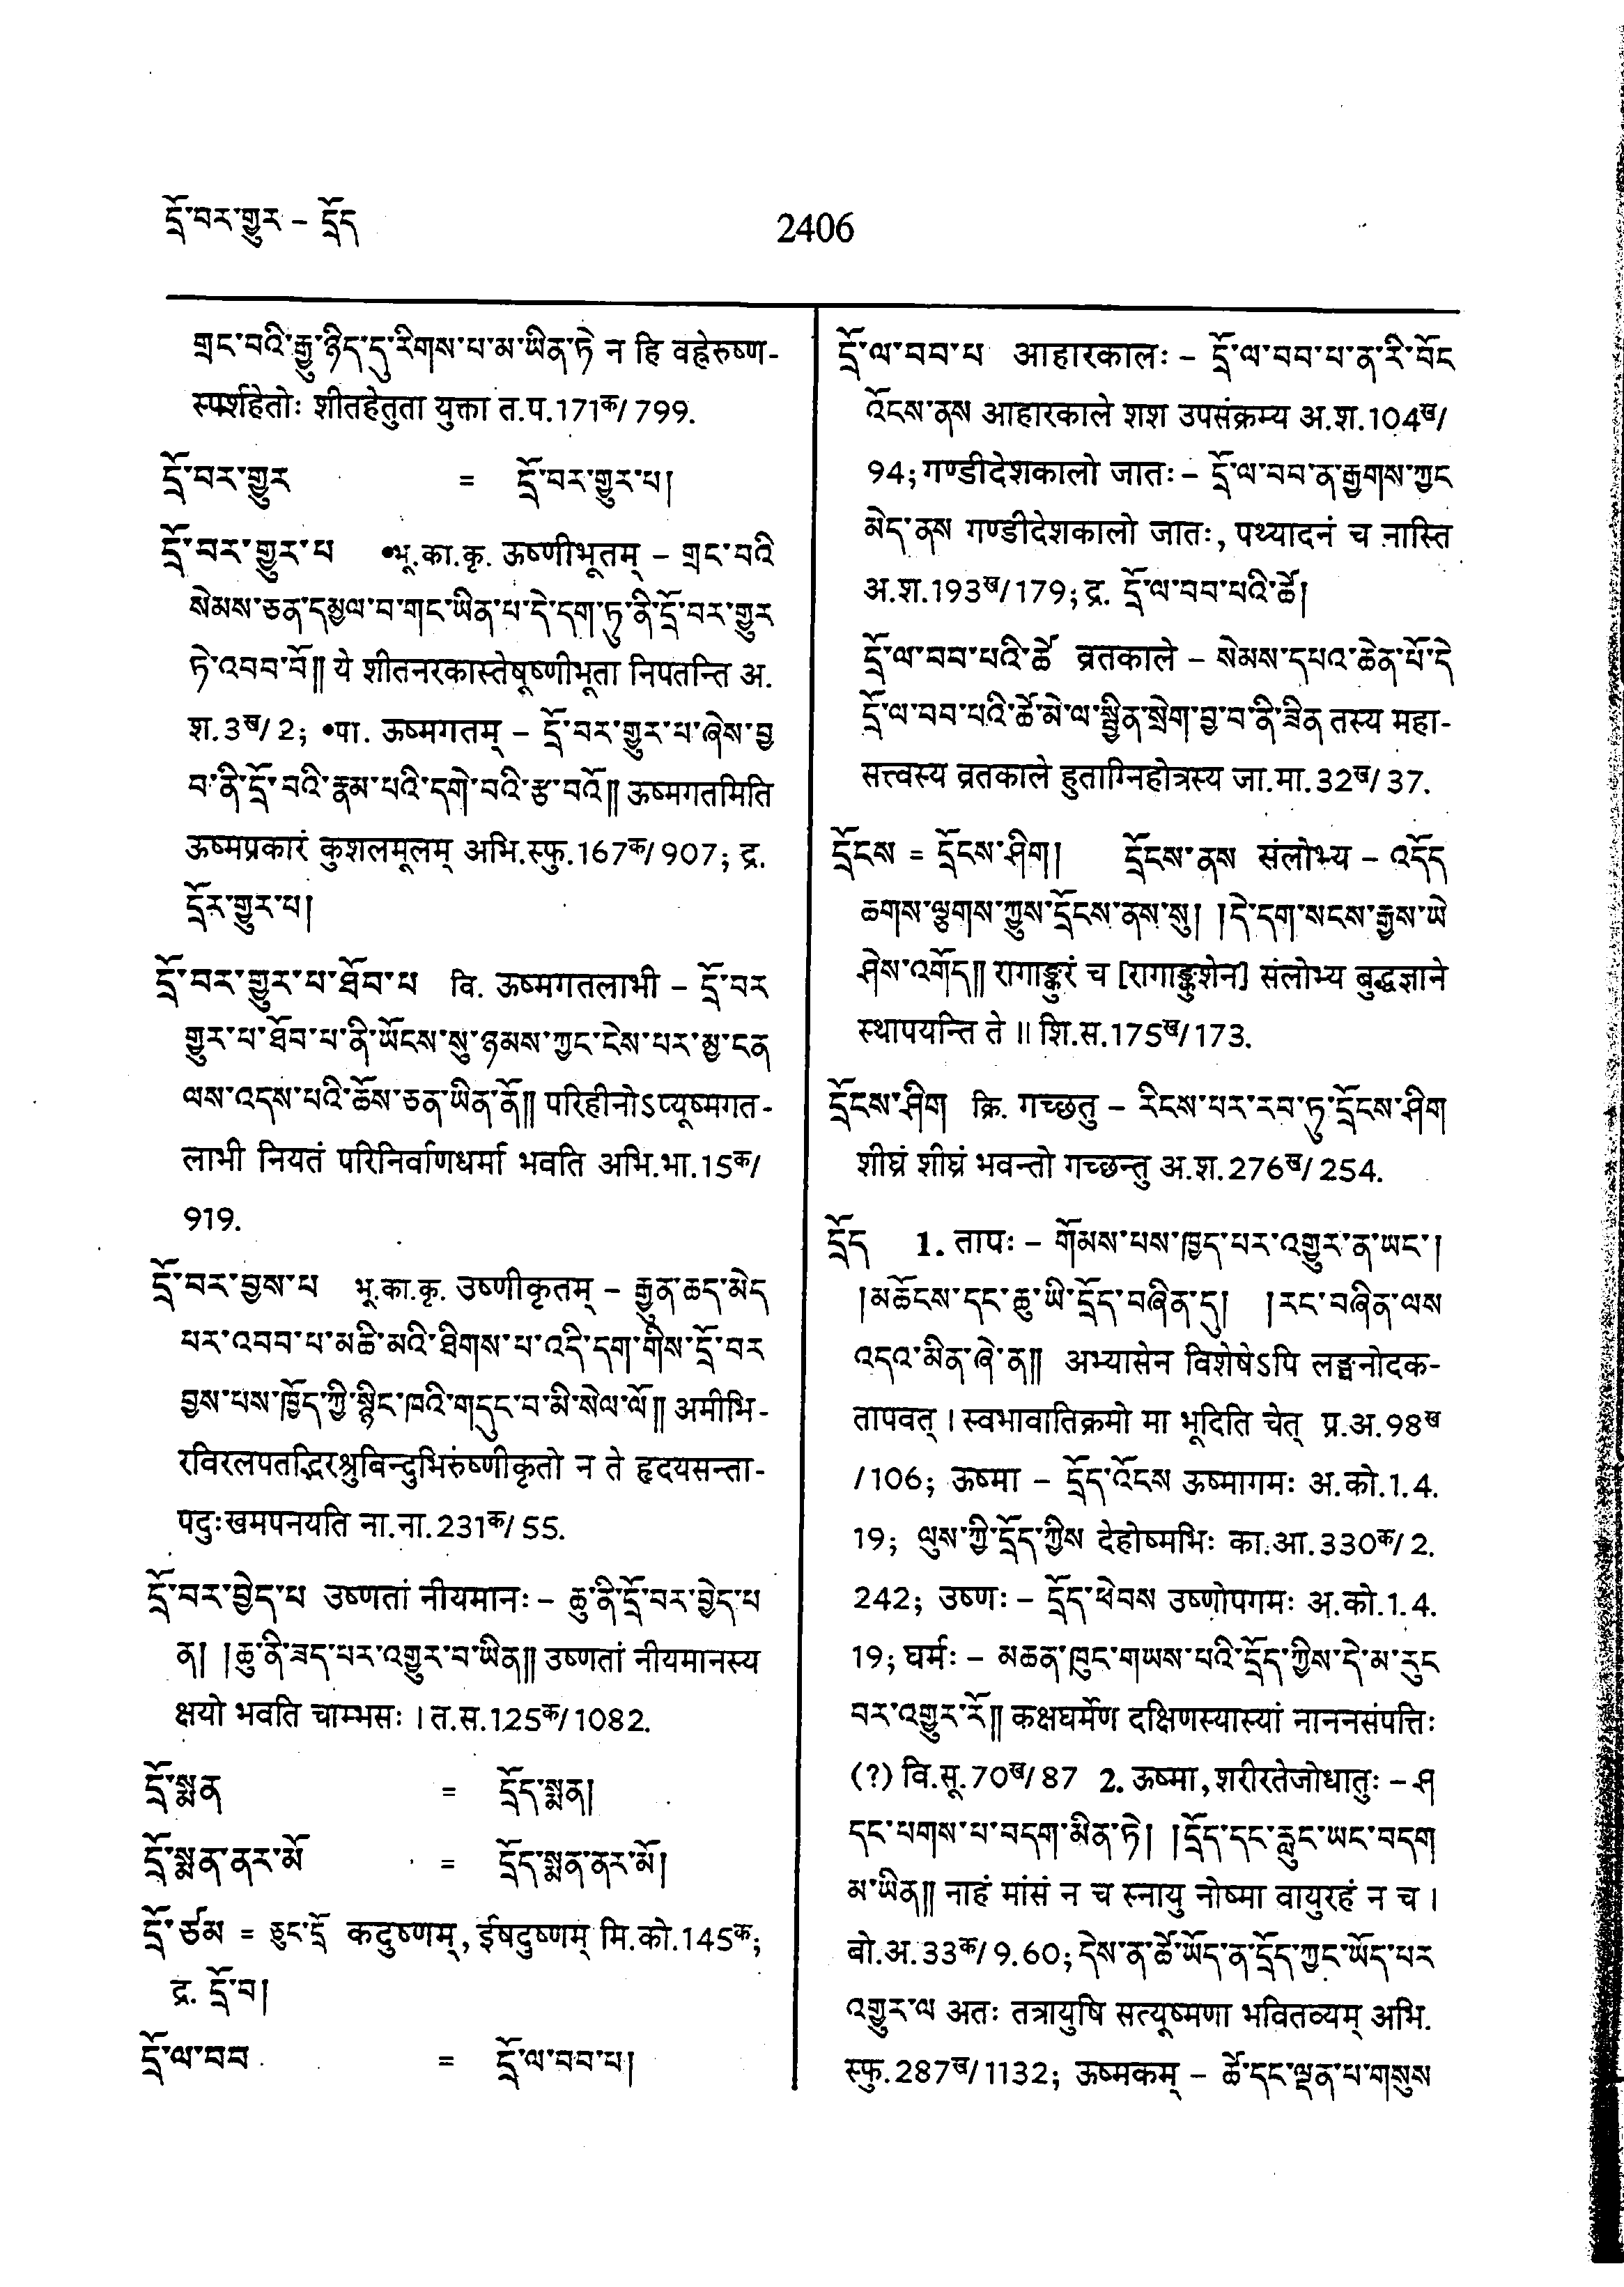 དྲོ་བར་གྱུར – དྲོད
2406
གྲང་བའི་རྒྱུ་ཉིད་དུ་རིགས་པ་མ་ཡིན་ཏེ न हि वह्नेरुष्ण-
स्पर्शहेतोः शीतहेतुता युक्ता त.प.171क/799.
དྲོ་བར་གྱུར = དྲོ་བར་གྱུར་པ།
དྲོ་བར་གྱུར་པ •भू.का.कृ. ऊष्णीभूतम् – གྲང་བའི
སེམས་ཅན་དམྱལ་བ་གང་ཡིན་པ་དེ་དག་ཏུ་ནི་དྲོ་བར་གྱུར
ཏེ་འབབ་བོ༎ ये शीतनरकास्तेषूष्णीभूता निपतन्ति अ.
श.3ख/2; •पा. ऊष्मगतम् – དྲོ་བར་གྱུར་པ་ཞེས་བྱ
བ་ནི་དྲོ་བའི་རྣམ་པའི་དགེ་བའི་རྩ་བའོ༎ ऊष्मगतमिति
ऊष्मप्रकारं कुशलमूलम् अभि.स्फु.167क/907; द्र.
དྲོར་གྱུར་པ།
དྲོ་བར་གྱུར་པ་ཐོབ་པ वि. ऊष्मगतलाभी – དྲོ་བར
གྱུར་པ་ཐོབ་པ་ནི་ཡོངས་སུ་ཉམས་ཀྱང་ངེས་པར་མྱ་ངན
ལས་འདས་པའི་ཆོས་ཅན་ཡིན་ནོ༎ परिहीनोऽप्यूष्मगत-
लाभी नियतं परिनिर्वाणधर्मा भवति अभि.भा.15क/
919.
དྲོ་བར་བྱས་པ भू.का.कृ. उष्णीकृतम् – རྒྱུན་ཆད་མེད
པར་འབབ་པ་མཆི་མའི་ཐིགས་པ་འདི་དག་གིས་དྲོ་བར
བྱས་པས་ཁྱོད་ཀྱི་སྙིང་ཁའི་གདུང་བ་མི་སེལ་ལོ༎ अमीभि-
रविरलपतद्भिरश्रुबिन्दुभिरुष्णीकृतो न ते हृदयसन्ता-
पदुःखमपनयति ना.ना.231क/55.
དྲོ་བར་བྱེད་པ उष्णतां नीयमानः – ཆུ་ནི་དྲོ་བར་བྱེད་པ
ན། །ཆུ་ནི་ཟད་པར་འགྱུར་བ་ཡིན༎ उष्णतां नीयमानस्य
क्षयो भवति चाम्भसः । त.स.125क/1082.
དྲོ་སྨན = དྲོད་སྨན།
དྲོ་སྨན་ནར་མོ = དྲོད་སྨན་ནར་མོ།
དྲོ་ཙམ = ཅུང་དྲོ कदुष्णम्, ईषदुष्णम् मि.को.145क;
द्र. དྲོ་བ།
དྲོ་ལ་བབ = དྲོ་ལ་བབ་པ།
དྲོ་ལ་བབ་པ आहारकालः – དྲོ་ལ་བབ་པ་ན་རི་བོང
འོངས་ནས आहारकाले शश उपसंक्रम्य अ.श.104ख/
94; गण्डीदेशकालो जातः – དྲོ་ལ་བབ་ན་རྒྱགས་ཀྱང
མེད་ནས गण्डीदेशकालो जातः, पथ्यादनं च नास्ति
अ.श.193ख/179; द्र. དྲོ་ལ་བབ་པའི་ཚེ།
དྲོ་ལ་བབ་པའི་ཚེ व्रतकाले – སེམས་དཔའ་ཆེན་པོ་དེ
དྲོ་ལ་བབ་པའི་ཚེ་མེ་ལ་སྦྱིན་སྲེག་བྱ་བ་ནི་ཟིན तस्य महा-
सत्त्वस्य व्रतकाले हुताग्निहोत्रस्य जा.मा.32ख/37.
དྲོངས = དྲོངས་ཤིག། དྲོངས་ནས संलोभ्य – འདོད
ཆགས་ལྕགས་ཀྱུས་དྲོངས་ནས་སུ། །དེ་དག་སངས་རྒྱས་ཡེ
ཤེས་འགོད༎ रागाङ्कुरं च [रागाङ्कुशेन] संलोभ्य बुद्धज्ञाने
स्थापयन्ति ते ॥ शि.स.175ख/173.
དྲོངས་ཤིག क्रि. गच्छतु – རིངས་པར་རབ་ཏུ་དྲོངས་ཤིག
शीघ्रं शीघ्रं भवन्तो गच्छन्तु अ.श.276ख/254.
དྲོད 1. तापः – གོམས་པས་ཁྱད་པར་འགྱུར་ན་ཡང་།
།མཆོངས་དང་ཆུ་ཡི་དྲོད་བཞིན་དུ། །རང་བཞིན་ལས
འདའ་མིན་ཞེ་ན༎ अभ्यासेन विशेषेऽपि लङ्घनोदक-
तापवत् । स्वभावातिक्रमो मा भूदिति चेत् प्र.अ.98ख
/106; ऊष्मा – དྲོད་འོངས ऊष्मागमः अ.को.1.4.
19; ལུས་ཀྱི་དྲོད་ཀྱིས देहोष्मभिः का.आ.330क/2.
242; उष्णः – དྲོད་ཕེབས उष्णोपगमः अ.को.1.4.
19; घर्मः – མཆན་ཁུང་གཡས་པའི་དྲོད་ཀྱིས་དེ་མ་རུང
བར་འགྱུར་རོ༎ कक्षघर्मेण दक्षिणस्यास्यां नाननसंपत्तिः
(?) वि.सू.70ख/87 2. ऊष्मा, शरीरतेजोधातुः – ཤ
དང་པགས་པ་བདག་མིན་ཏེ། །དྲོད་དང་རླུང་ཡང་བདག
མ་ཡིན༎ नाहं मांसं न च स्नायु नोष्मा वायुरहं न च ।
बो.अ.33क/9.60; དེས་ན་ཚེ་ཡོད་ན་དྲོད་ཀྱང་ཡོད་པར
འགྱུར་ལ अतः तत्रायुषि सत्यूष्मणा भवितव्यम् अभि.
स्फु.287ख/1132; ऊष्मकम् – ཚེ་དང་ལྡན་པ་གསུས